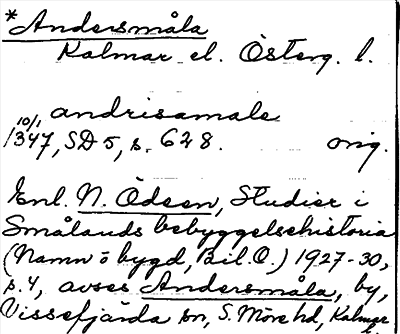 *Andersmåla
Kalmar el. Österg. l.
andrisamale
10/1 1347, SD 5, s. 628. orig.
Enl. N. Ödeen, Studier i
Smålands bebyggelsehistoria
(Namn o bygd, Bil. O.) 1927-30,
s. 4, avses Andersmåla, by,
Vissefjärda sn, S. Möre hd, Kalmar l.